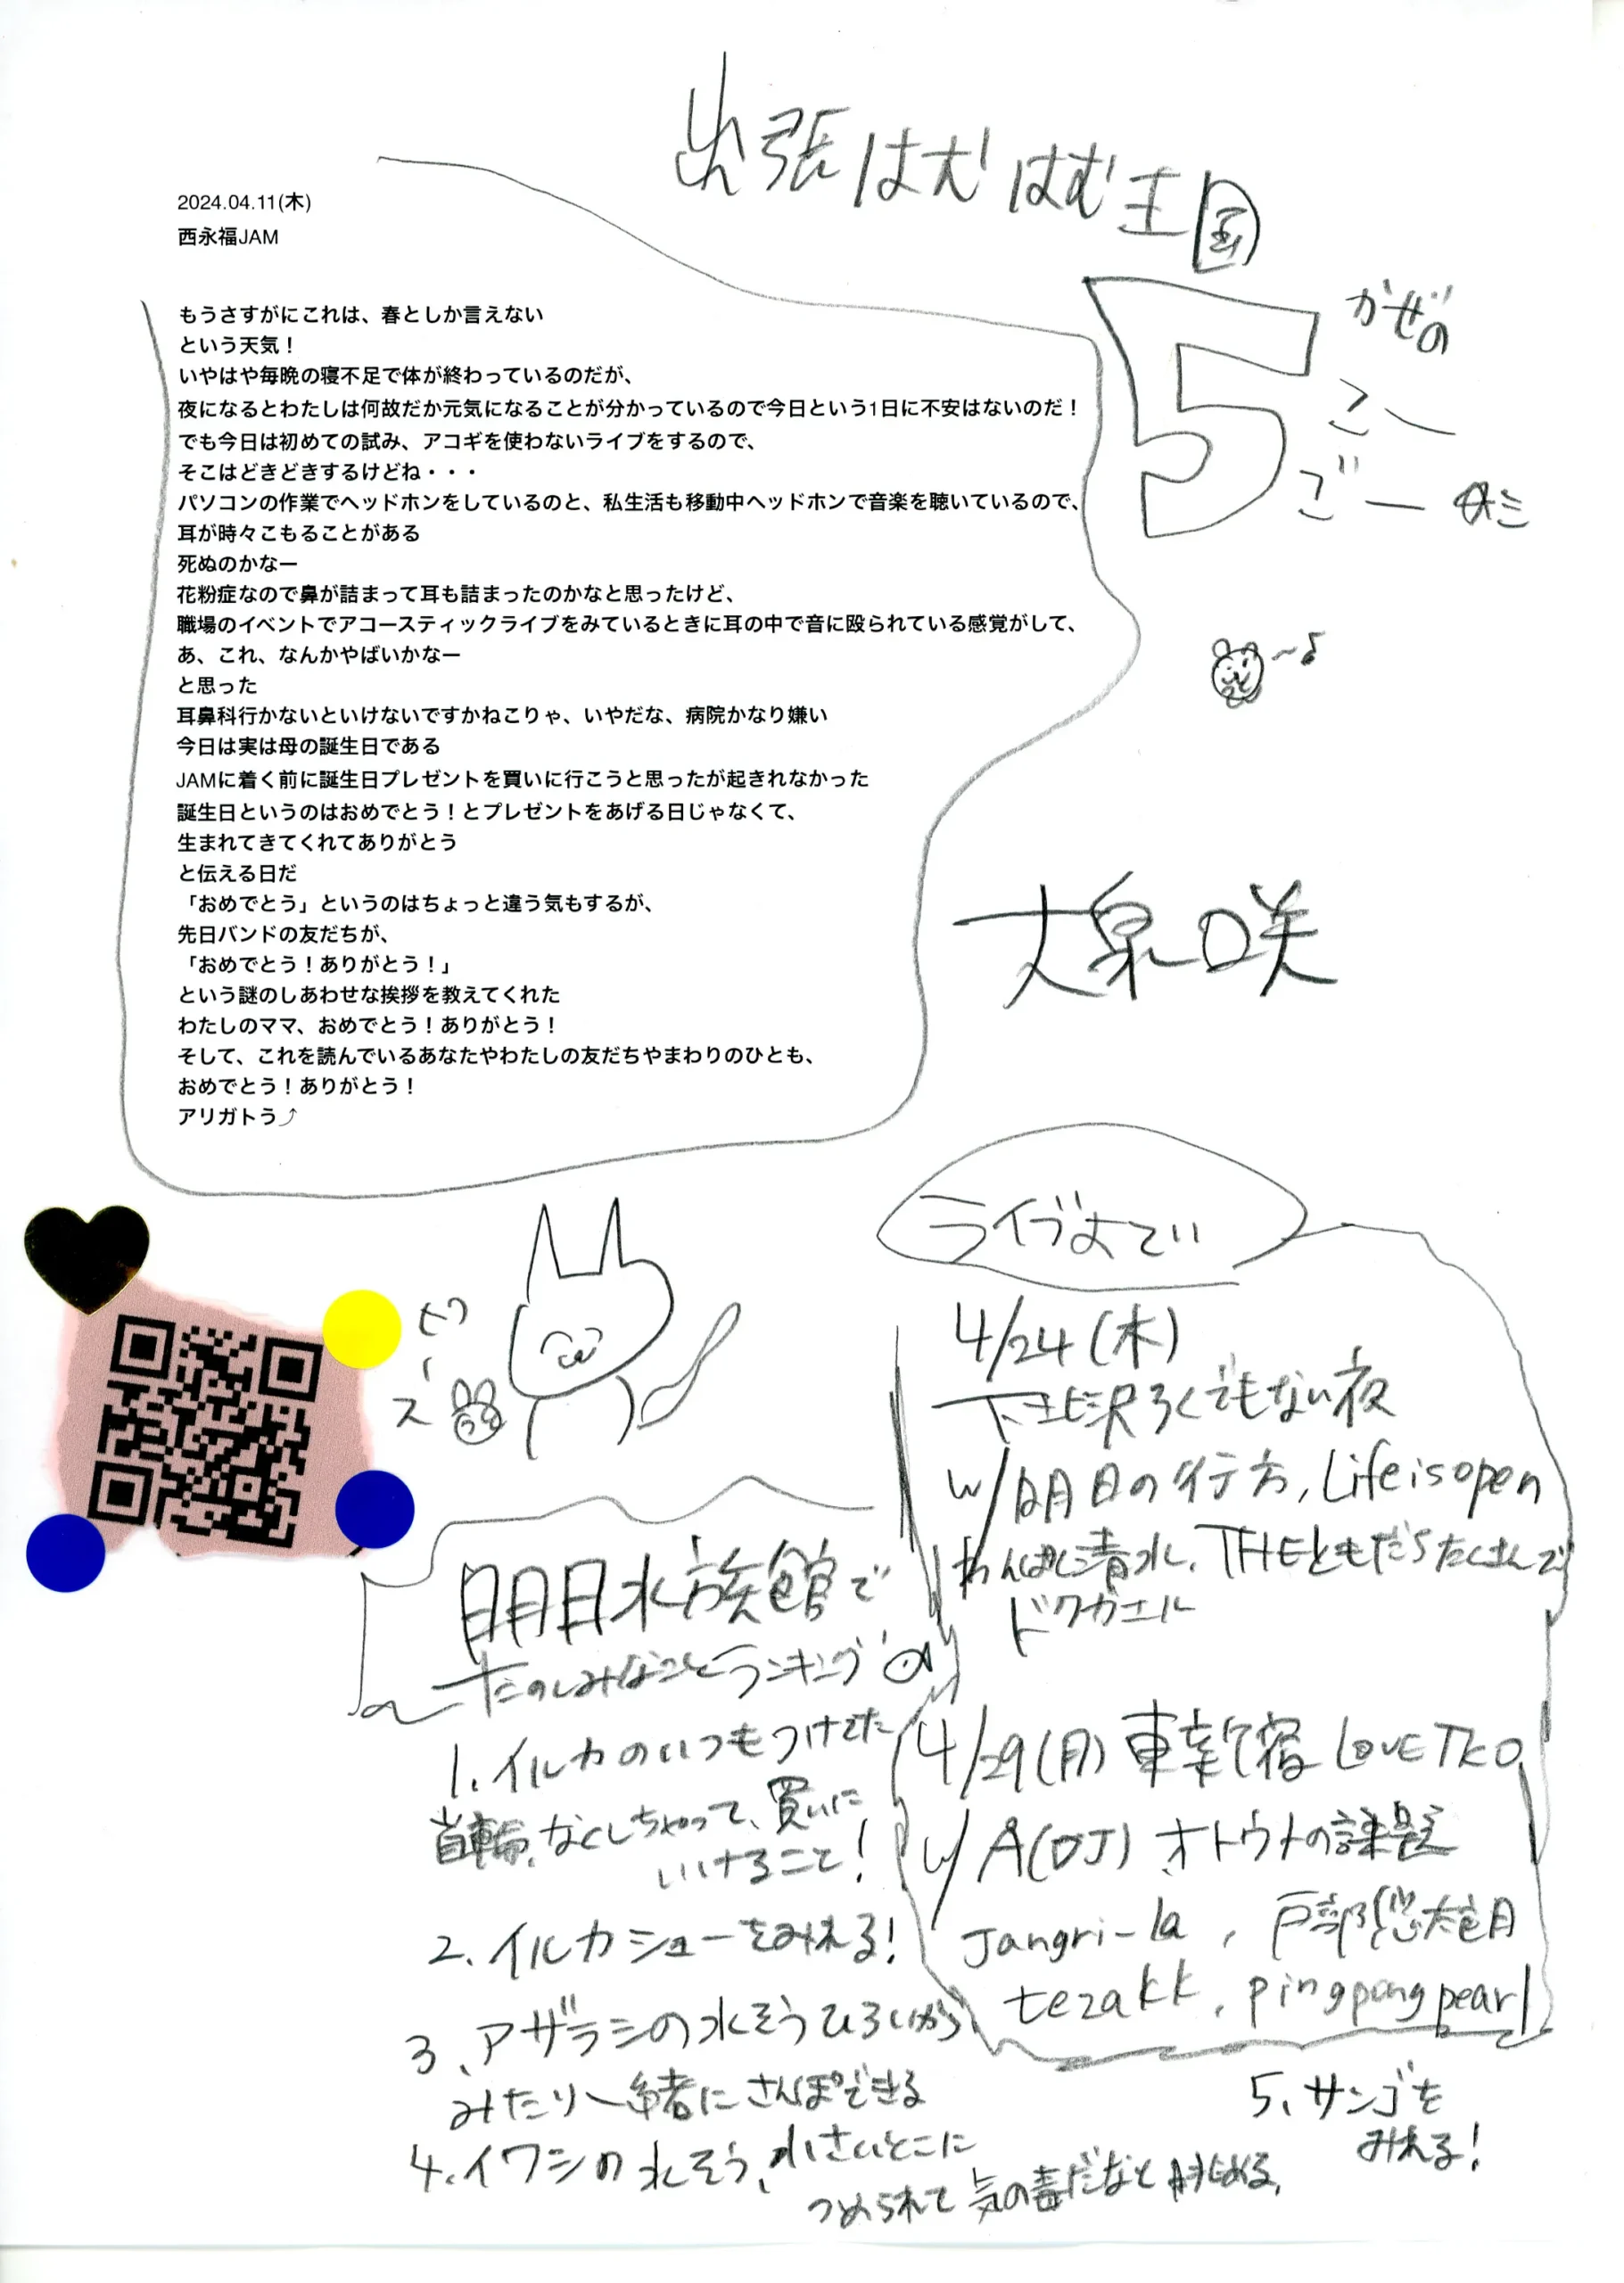 出張はむはむ王国
5
かぜの
こー
ごー
2024.04.11(木)
西永福JAM
もうさすがにこれは、春としか言えない
という天気！
いやはや毎晩の寝不足で体が終わっているのだが、
夜になるとわたしは何故だか元気になることが分かっているので今日という1日に不安はないのだ！
でも今日は初めての試み、アコギを使わないライブをするので、
そこはどきどきするけどね・・・
パソコンの作業でヘッドホンをしているのと、私生活も移動中ヘッドホンで音楽を聴いているので、
耳が時々こもることがある
死ぬのかなー
花粉症なので鼻が詰まって耳も詰まったのかなと思ったけど、
職場のイベントでアコースティックライブをみているときに耳の中で音に殴られている感覚がして、
あ、これ、なんかやばいかなー
と思った
耳鼻科行かないといけないですかねこりゃ、いやだな、病院かなり嫌い
今日は実は母の誕生日である
JAMに着く前に誕生日プレゼントを買いに行こうと思ったが起きれなかった
誕生日というのはおめでとう！とプレゼントをあげる日じゃなくて、
生まれてきてくれてありがとう
と伝える日だ
「おめでとう」というのはちょっと違う気もするが、
先日バンドの友だちが、
「おめでとう！ありがとう！」
という謎のしあわせな挨拶を教えてくれた
わたしのママ、おめでとう！ありがとう！
そして、これを読んでいるあなたやわたしの友だちやまわりのひとも、
おめでとう！ありがとう！
アリガトう⤴
大泉咲
ピース
ライブよてい
4/24(木)
下北沢ろくでもない夜
w/明日の行方, Life is open
わんぱく清水, THEともだちたくさんで
ドクガエル
4/29(月) 東新宿 LOVE TKO
w/ A(DJ) オトウナの課題
Jangri-la,
tezakk, pingpong pearl
明日水族館で
たのしみなことランキング
1. イルカのいつもつけてた
首輪、なくしちゃって、買いに
いけること！
2. イルカショーをみれる！
3、アザラシの水そうひろいから
みたり一緒にさんぽできる
4. イワシの水そう、小さいとこに
つめられて気の毒だなと眺める、
5、サンゴを
みれる！